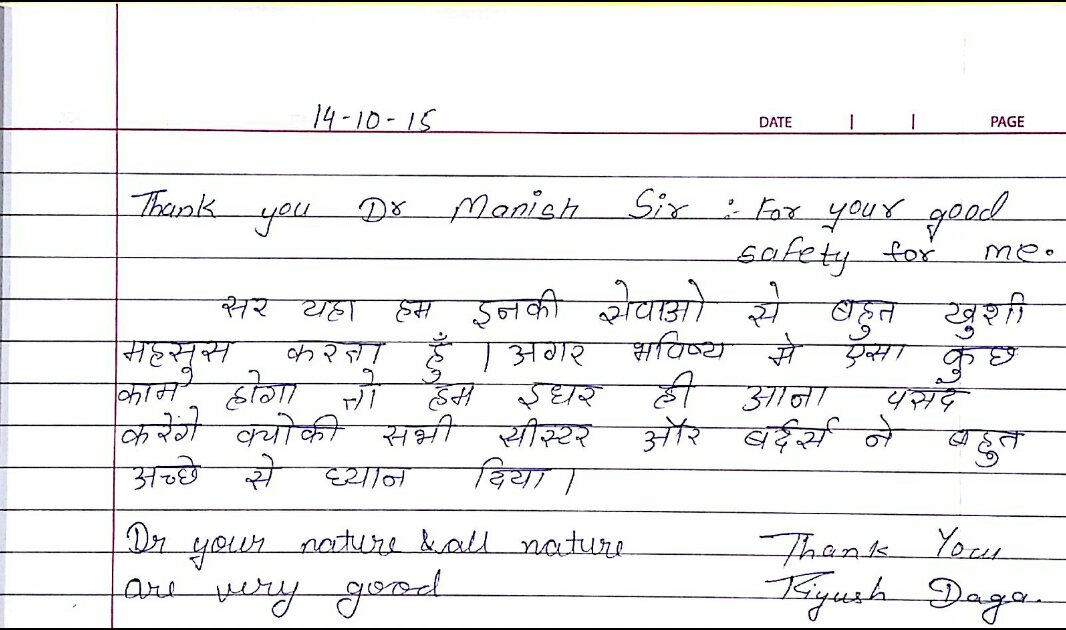 14-10-15
DATE | | PAGE
Thank you Dr Manish Sir :- For your good
safety for me.
सर यहा हम इनकी सेवाओ से बहुत खुशी
महसुस करता हुँ । अगर भविष्य मे ऐसा कुछ
काम होगा तो हम इधर ही आना पसंद
करेंगे क्योकी सभी सीस्टर और बर्दर्स ने बहुत
अच्छे से ध्यान दिया ।
Dr your nature & all nature
are very good
Thank You
Piyush Daga.